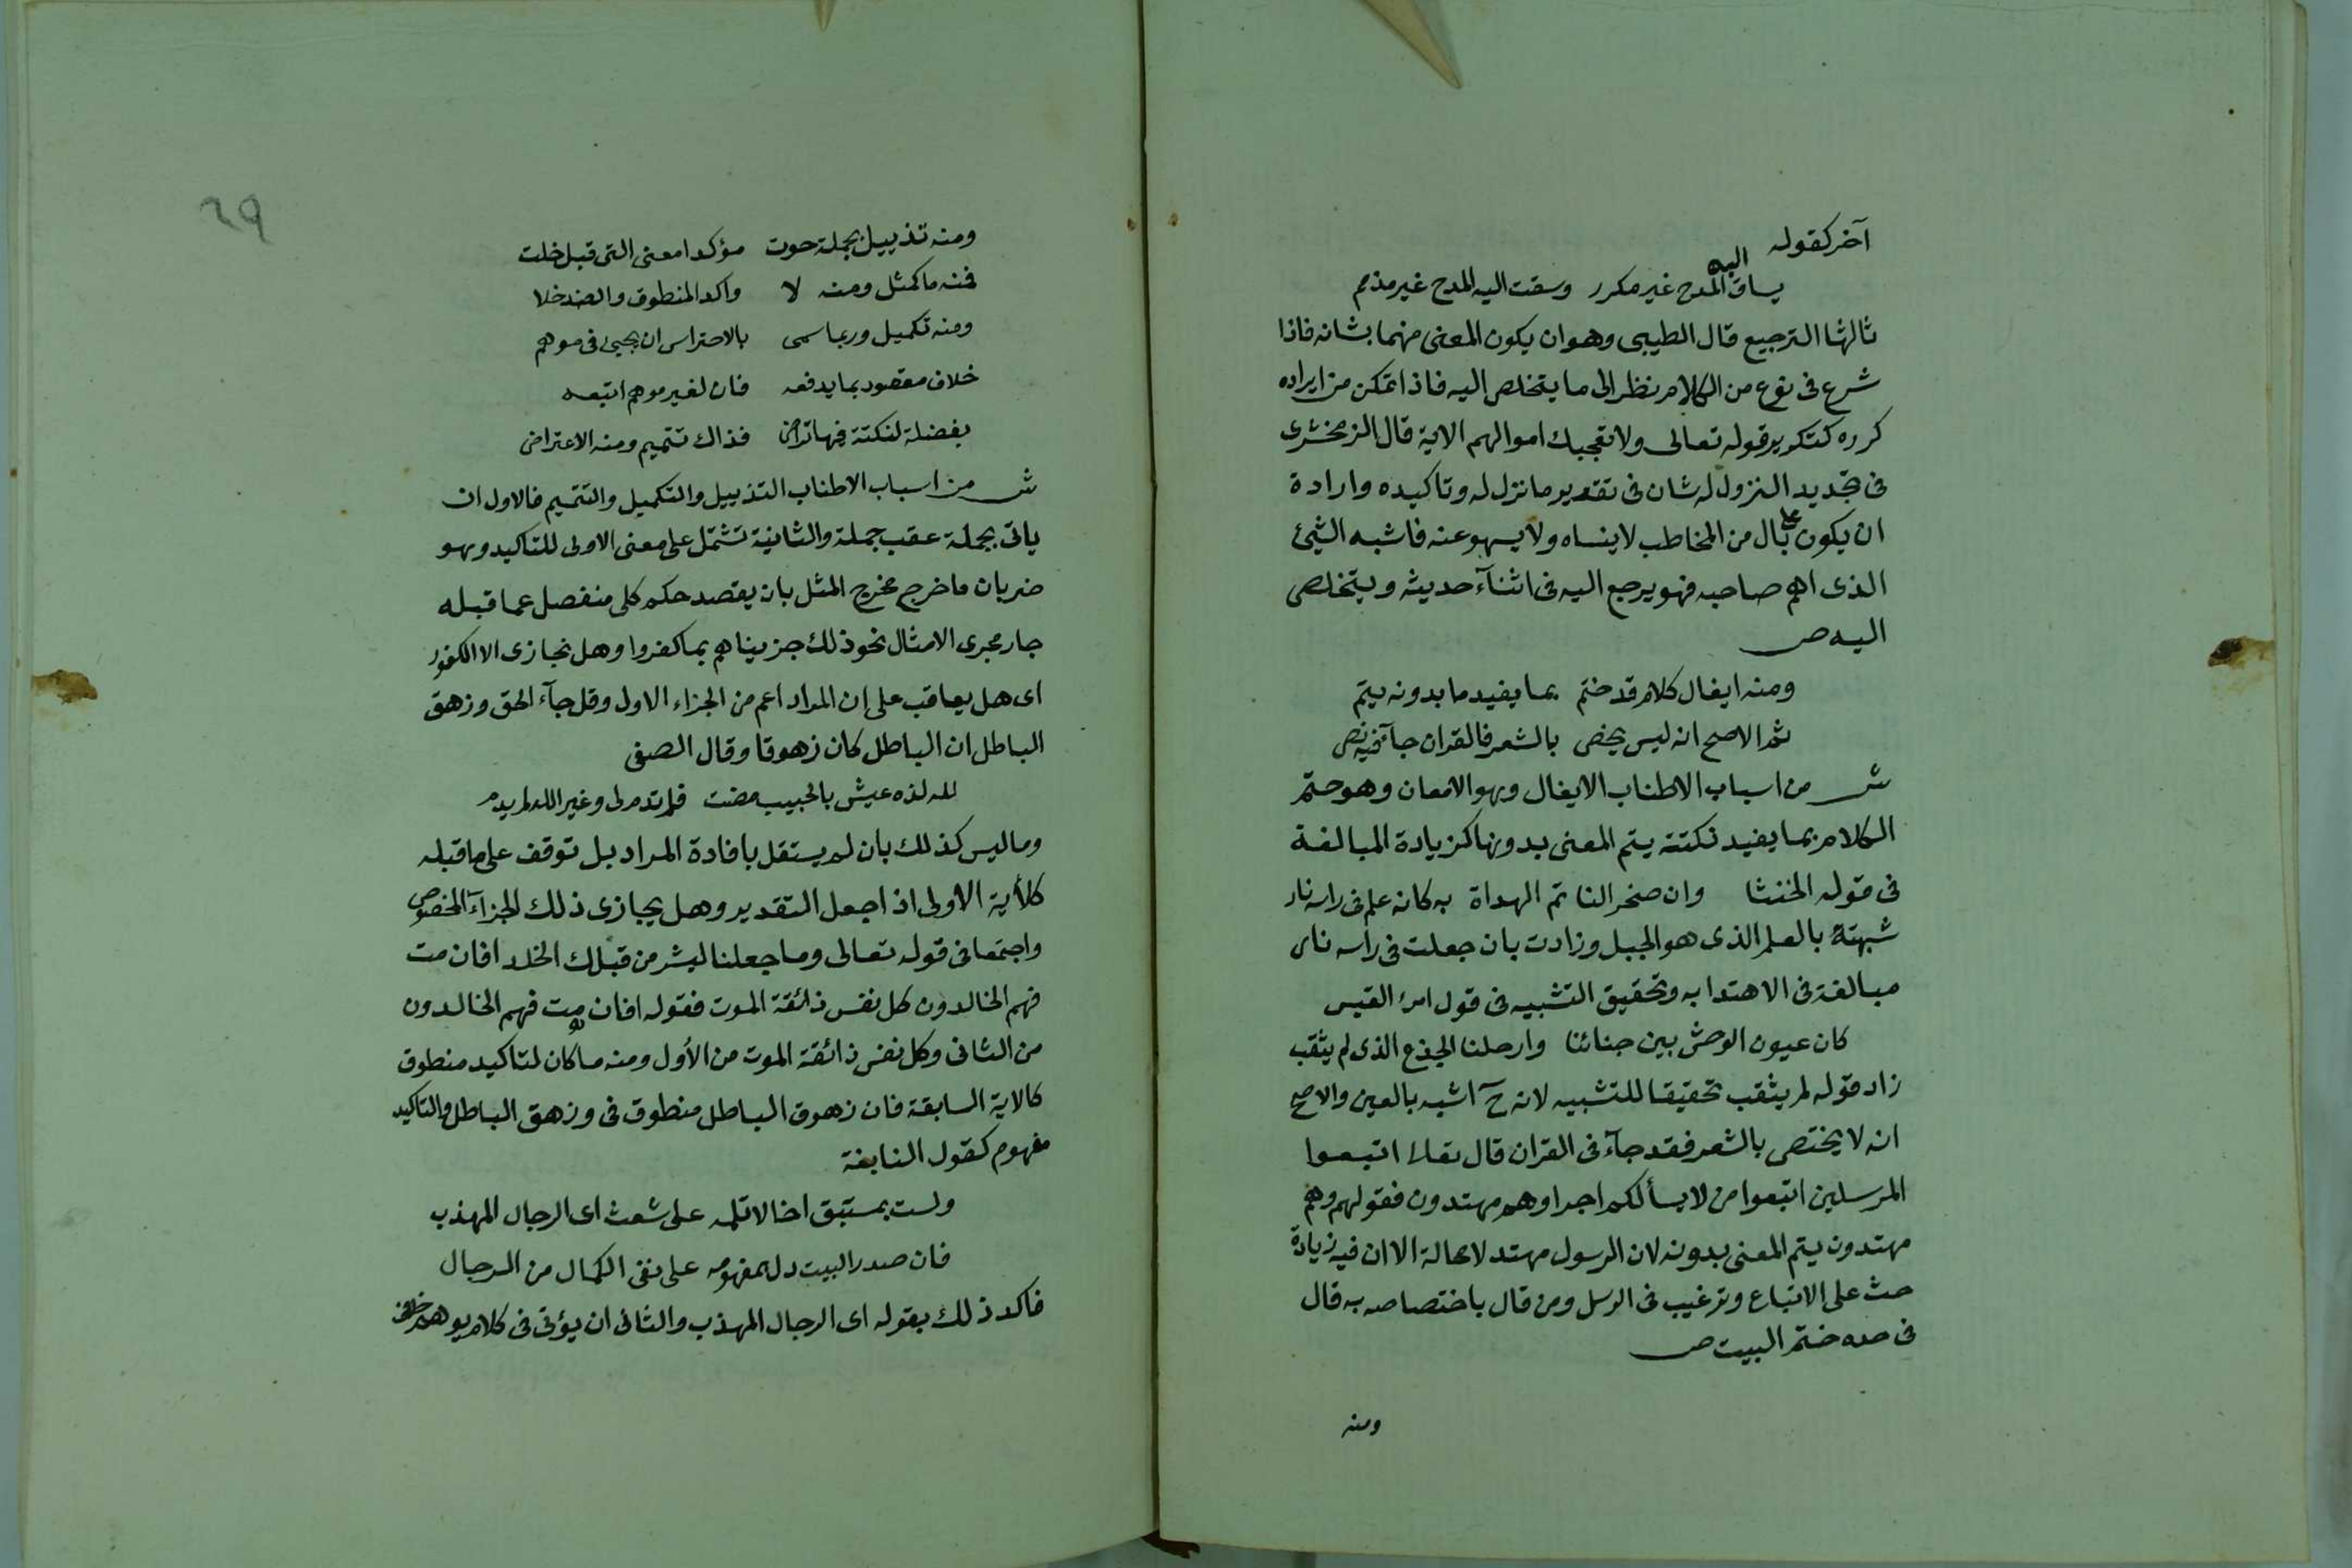 آخر كقوله
يساق اليه المدح غير مكرر وسقت اليه المدح غير مذمم
ثالثها الترجيع قال الطيبى وهو ان يكون المعنى مهتما بشانه فاذا
شرع فى نوع من الكلام نظر الى ما يتخلص اليه فاذا تمكن من ايراده
كرره كتكرير قوله تعالى ولا تعجبك اموالهم الاية قال الزمخشرى
فى تجديد النزول له شان فى تقدير ما نزل له وتاكيده وارادة
ان يكون على بال من المخاطب لا ينساه ولا يسهو عنه فاشبه الشيئ
الذى اهم صاحبه فهو يرجع اليه فى اثنآء حديثه ويتخلص
اليه ص
ومنه ايغال كلام قد ختم بما يفيد ما بدونه يتم
ثم الاصح انه ليس يخص بالشعر فالقران جآء فيه نص
ش من اسباب الاطناب الايغال وهو الامعان وهو ختم
الكلام بما يفيد نكتة يتم المعنى بدونها كزيادة المبالغة
فى قوله الخنثا وان صخر التا تم الهداة به كانه علم فى راسه نار
شبهته بالعلم الذى هو الجبل وزادت بان جعلت فى رأسه نار
مبالغة فى الاهتدا به وتحقيق التشبيه فى قول امرئ القيس
كان عيون الوحش بين جنائنا وارحلنا الجذع الذى لم يثقب
زاد قوله لم يثقب تحقيقا للتشبيه لانه ح اشبه بالعين والاصح
انه لا يختص بالشعر فقد جآء فى القران قال تعالى اتبعوا
المرسلين اتبعوا من لا يسألكم اجرا وهم مهتدون فقولهم وهم
مهتدون يتم المعنى بدونه لان الرسول مهتد لا محالة الا ان فيه زيادة
حث على الاتباع وترغيب فى الرسل ومن قال باختصاصه به قال
فى حده ختم البيت ص
ومنه
٦٩
ومنه تذييل بجملة حوت مؤكدا معنى التى قبل خلت
فمنه ما كمثل ومنه لا واكد المنطوق والضد خلا
ومنه تكميل وربما سمى بالاحتراس ان يجيئ فى موهم
خلاف مقصود بما يدفعه فان لغير موهم اتبعه
بفضلة لنكتة فيها تراض فذاك تتميم ومنه الاعتراض
ش من اسباب الاطناب التذييل والتكميل والتتميم فالاول ان
ياتى بجملة عقب جملة والثانية تشتمل على معنى الاولى للتاكيد وهو
ضربان ما خرج مخرج المثل بان يقصد حكم كلى منفصل عما قبله
جار مجرى الامثال نحو ذلك جزيناهم بما كفروا وهل نجازى الا الكفور
اى هل يعاقب على ان المراد اعم من الجزاء الاول وقل جآء الحق وزهق
الباطل ان الباطل كان زهوقا وقال الصفى
لله لذه عيش بالحبيب مضت فلم تدم لى وغير الله لم يدم
وما ليس كذلك بان لم يستقل بافادة المراد بل توقف على ما قبله
كلأية الاولى اذا جعل التقدير وهل يجازى ذلك الجزآء المخصوص
واجتمعا فى قوله تعالى وما جعلنا لبشر من قبلك الخلد افان مت
فهم الخالدون كل نفس ذائقة الموت فقوله افان مت فهم الخالدون
من الثانى وكل نفس ذائقة الموت من الأول ومنه ما كان لتاكيد منطوق
كالاية السابقة فان زهوق الباطل منطوق فى وزهق الباطل والتاكيد
مفهوم كقول النابغة
ولست بمستبق اخا لا تلمه على شعث اى الرجال المهذب
فان صدر البيت دل بمفهومه على نفى الكمال من الرجال
فاكد ذلك بقوله اى الرجال المهذب والثانى ان يؤتى فى كلام يوهم خلاف